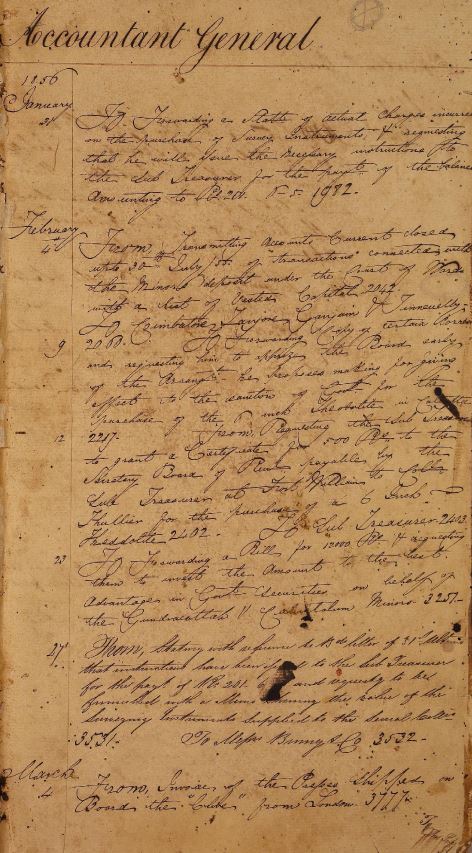 Accountant General
1856
January
21
To, Forwarding a State of actual Charges incurred
on the purchase of Survey Instruments & requesting
that he will issue the necessary instructions to
the Sub Treasurer for the payt. of the balance
amounting to 201. 1982.
February
4
From, Transmitting Accounts Current closed
upto 30th July of transactions connected with
the Minors deposit under the Court of Wards
with a list of Vested Capital 2042
To Coimbatore, Tanjore, Ganjam & Tinnevelly
9
To Forwarding Copy of certain
and requesting him to apprize the Board early
of the Arrangt. he proposes making for giving
effect to the sanction of Govt. for the
purchase of the 6 inch Theodolite in
12
2217. From, Requesting the Sub Treasurer
to grant a Certificate for 500 to the
Secretary Board of payable by the
Sub Treasurer at Fort William to
Thullier for the purchase of a 6 Inch
Theodolite 2402. To Sub Treasurer 2403
23
To Forwarding a Bill for 12000 & requesting
them to invest the Amount to the best
Advantage in Govt. Securities on behalf of
the Minors 3251.
27
From, Stating with reference to letter of 21st
that instructions have been to the Sub Treasurer
for the payt. of 201 and requests to be
furnished with a Memo the value of the
Surveying Instruments supplied to the
3531. To Messrs Binny & Co 3532.
March
4
From, Invoice of the Shipped on
Board the "Clive" from London 3777.